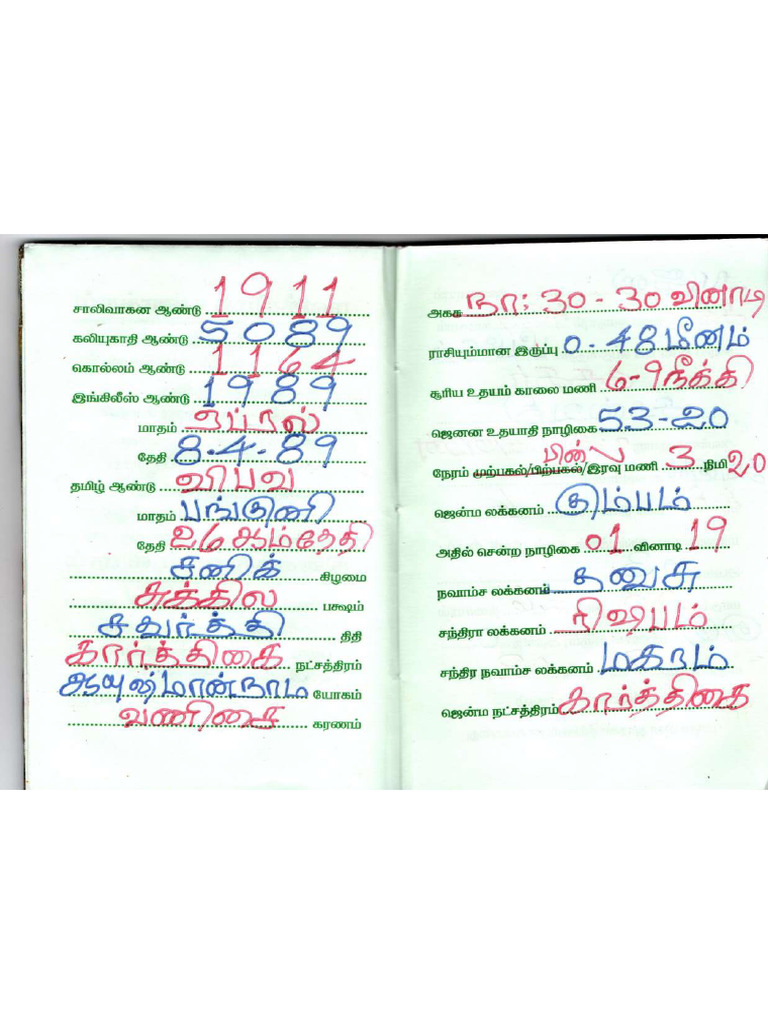 சாலிவாகன ஆண்டு 1911
கலியுகாதி ஆண்டு 5089
கொல்லம் ஆண்டு 1164
இங்கிலீஸ் ஆண்டு 1989
மாதம் ஏப்ரல்
தேதி 8-4-89
தமிழ் ஆண்டு விபவ
மாதம் பங்குனி
தேதி 26 ஆம்தேதி
சனிக் கிழமை
சுக்கில பக்ஷம்
சதுர்த்தி திதி
கார்த்திகை நட்சத்திரம்
ஆயுஷ்மான்நாம யோகம்
வணிசை கரணம்
அகசு நா: 30-30 வினாடி
ராசியும்மான இருப்பு 0-48 மீனம்
சூரிய உதயம் காலை மணி 6-9 நீக்கி
ஜெனன உதயாதி நாழிகை 53-20
பின்
நேரம் முற்பகல்/பிற்பகல்/இரவு மணி 3 நிமி 20
ஜென்ம லக்கனம் கும்பம்
அதில் சென்ற நாழிகை 01 வினாடி 19
நவாம்ச லக்கனம் தனுசு
சந்திரா லக்கனம் ரிஷபம்
சந்திர நவாம்ச லக்கனம் மகரம்
ஜென்ம நட்சத்திரம் கார்த்திகை